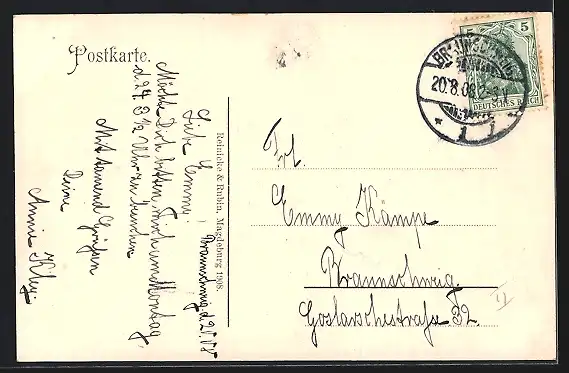 Postkarte.
Braunschweig d. 20.8.08
Liebe Emmy!
Möchte Dich bitten, mich am Montag
d. 24. 8 ½ Uhr zu besuchen
Mit tausend Grüßen
Deine
Annie
Reinicke & Rubin, Magdeburg 1908.
BRAUNSCHWEIG
20.8.08
* 1
5
5
DEUTSCHES REICH
Frl.
Emmy Kämpe
Braunschweig.
Goslarschestraße 32.